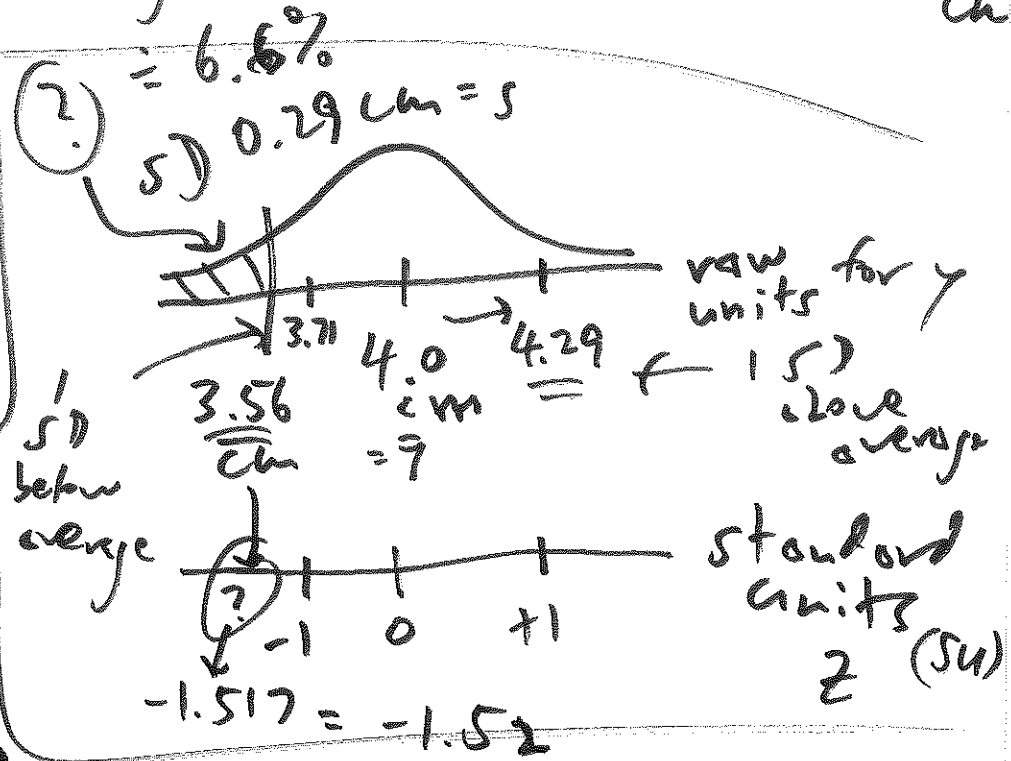 = 6.6%
?
SD 0.29 cm = s
raw for y
units
3.71
4.0
4.29
← 1 SD
above
average
cm
= ȳ
3.56
cm
1
SD
below
average
standard
units
(SU)
z
?
-1 0 +1
-1.517 = -1.52